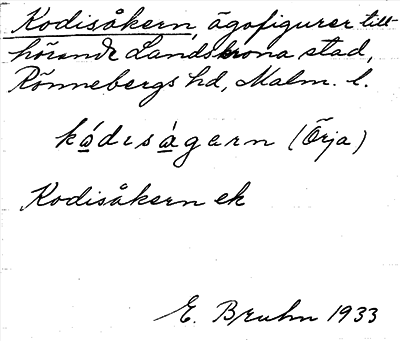 Kodisåkern, ägofigurer till-
hörande Landskrona stad,
Rönnebergs hd, Malm. l.
kádısàgarn (Örja)
Kodisåkern ek
E. Bruhn 1933